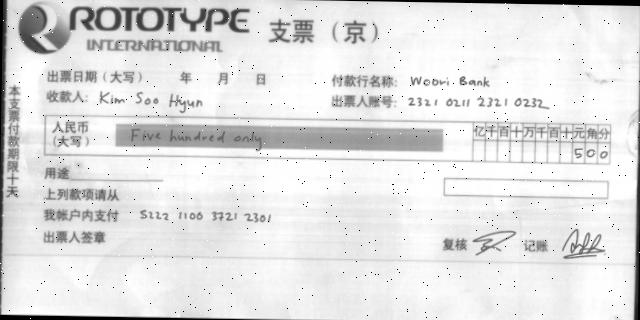 ROTOTYPE
INTERNATIONAL
支票（京）
出票日期（大写） 年 月 日
付款行名称： Woori Bank
收款人： Kim Soo Hyun
出票人账号： 2321 0211 2321 0232
本支票付款期限十天
人民币
（大写）
Five hundred only
亿千百十万千百十元角分
500
用途
上列款项请从
我帐户内支付 5222 1100 3721 2301
出票人签章
复核
记账